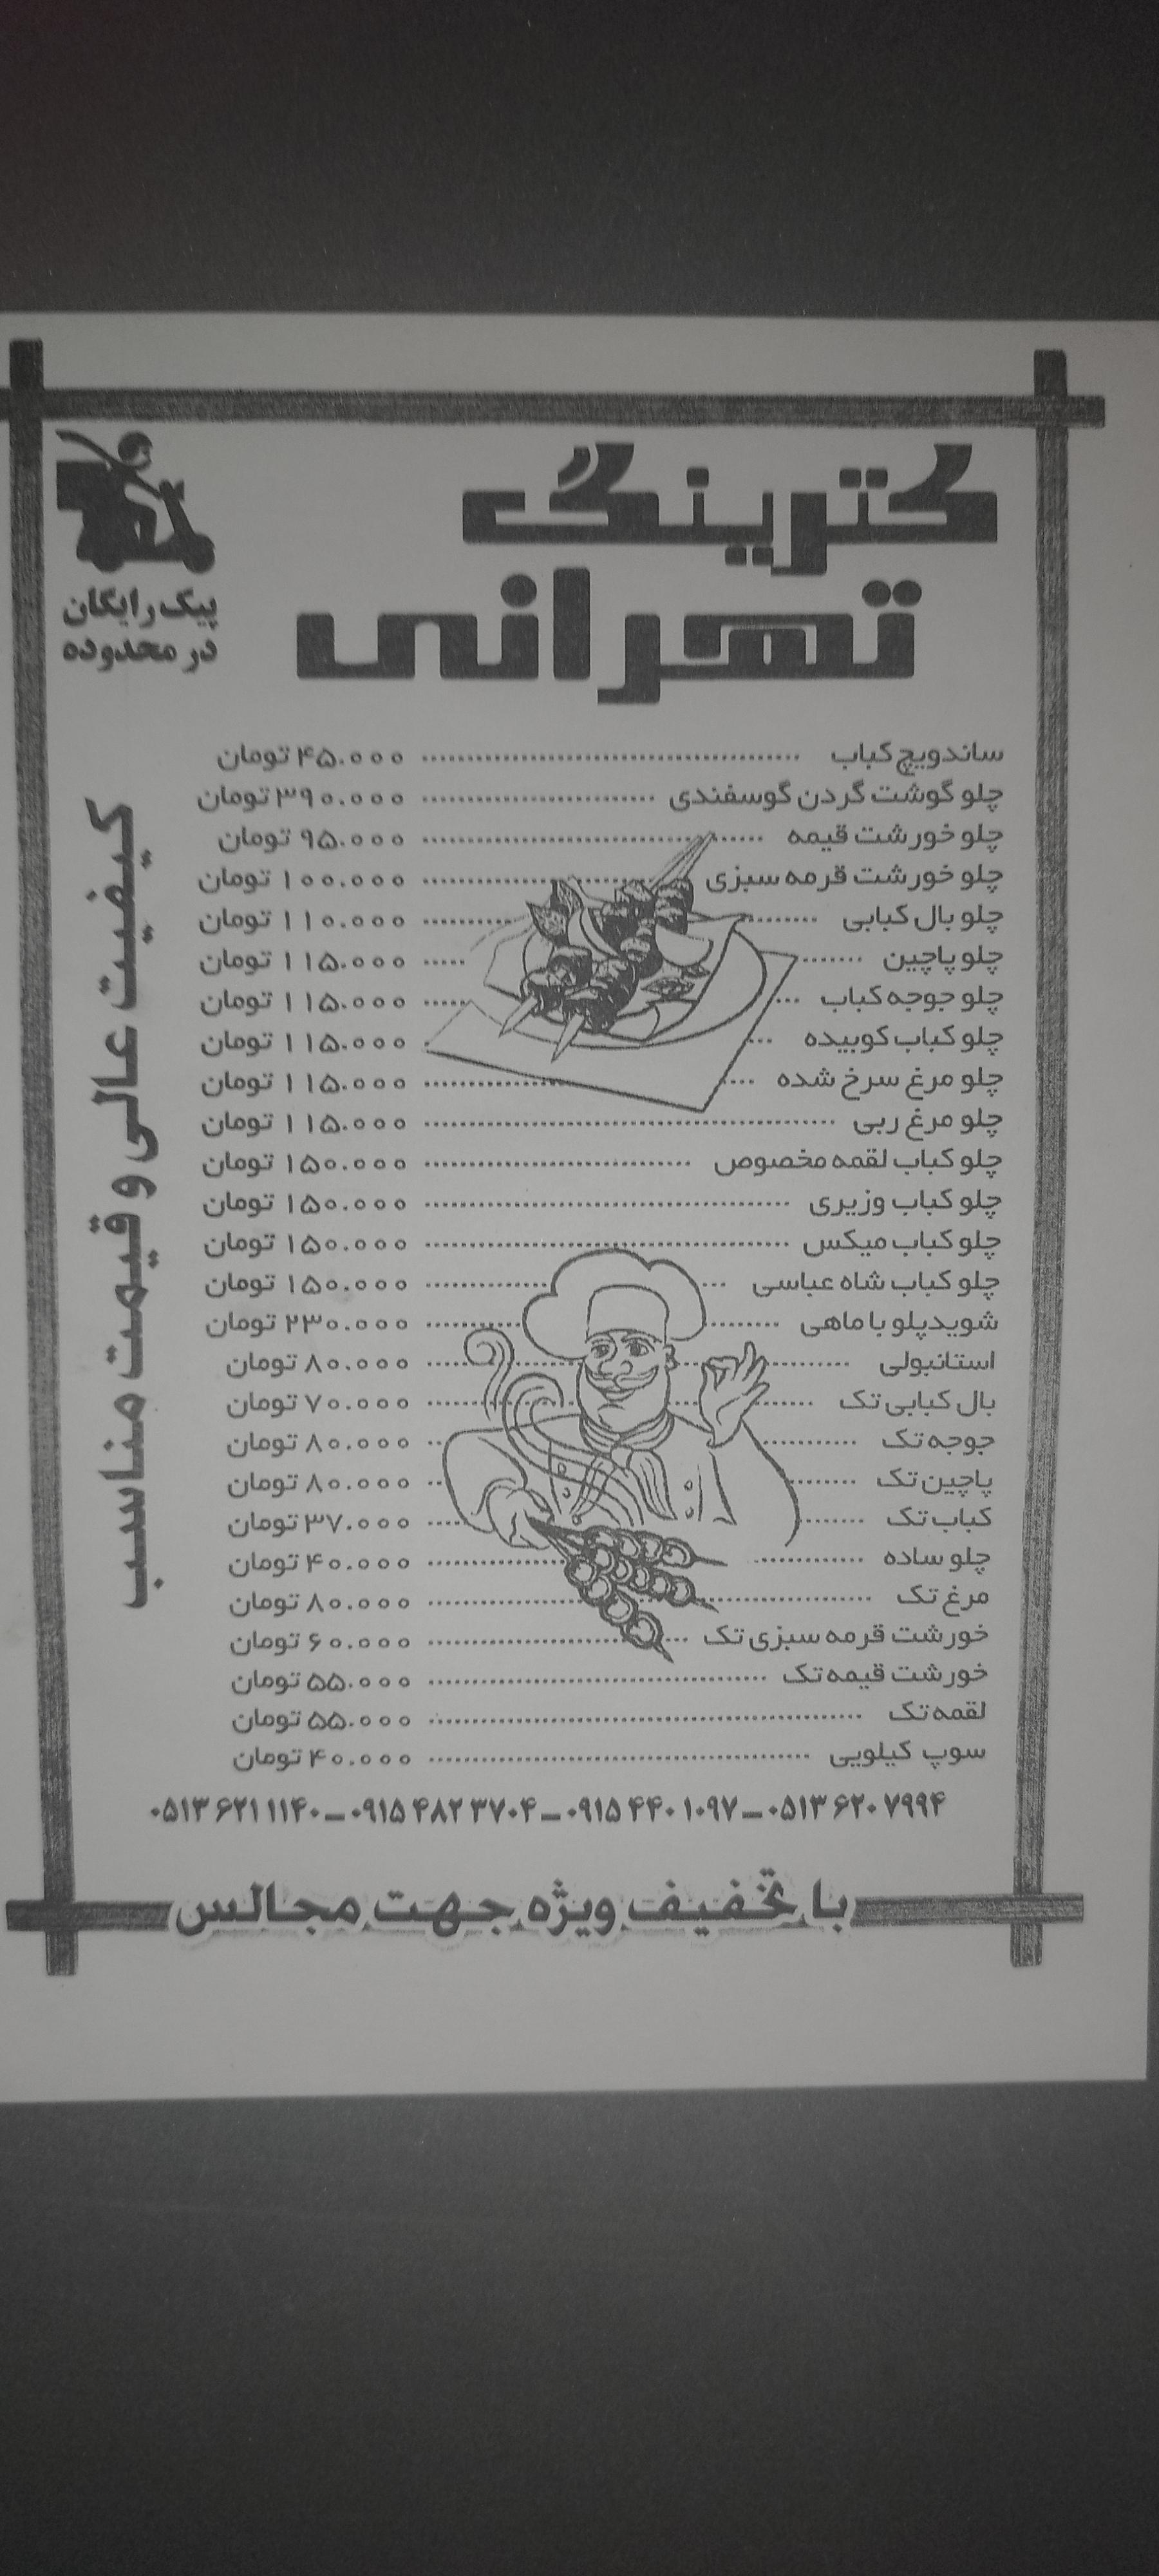 کترینگ
تهرانی
پیک رایگان
در محدوده
ساندویچ کباب ۴۵.۰۰۰ تومان
چلو گوشت گردن گوسفندی ۳۹۰.۰۰۰ تومان
چلو خورشت قیمه ۹۵.۰۰۰ تومان
چلو خورشت قرمه سبزی ۱۰۰.۰۰۰ تومان
چلو بال کبابی ۱۱۰.۰۰۰ تومان
چلو پاچین ۱۱۵.۰۰۰ تومان
چلو جوجه کباب ۱۱۵.۰۰۰ تومان
چلو کباب کوبیده ۱۱۵.۰۰۰ تومان
چلو مرغ سرخ شده ۱۱۵.۰۰۰ تومان
چلو مرغ ربی ۱۱۵.۰۰۰ تومان
چلو کباب لقمه مخصوص ۱۵۰.۰۰۰ تومان
چلو کباب وزیری ۱۵۰.۰۰۰ تومان
چلو کباب میکس ۱۵۰.۰۰۰ تومان
چلو کباب شاه عباسی ۱۵۰.۰۰۰ تومان
شویدپلو با ماهی ۲۳۰.۰۰۰ تومان
استانبولی ۸۰.۰۰۰ تومان
بال کبابی تک ۷۰.۰۰۰ تومان
جوجه تک ۸۰.۰۰۰ تومان
پاچین تک ۸۰.۰۰۰ تومان
کباب تک ۳۷.۰۰۰ تومان
چلو ساده ۴۰.۰۰۰ تومان
مرغ تک ۸۰.۰۰۰ تومان
خورشت قرمه سبزی تک ۶۰.۰۰۰ تومان
خورشت قیمه تک ۵۵.۰۰۰ تومان
لقمه تک ۵۵.۰۰۰ تومان
سوپ کیلویی ۴۰.۰۰۰ تومان
کیفیت عالی و قیمت مناسب
۰۵۱۳ ۶۲۱ ۱۱۴۰ – ۰۹۱۵ ۴۸۲ ۳۷۰۴ – ۰۹۱۵ ۴۴۰ ۱۰۹۷ – ۰۵۱۳ ۶۲۰ ۷۹۹۴
با تخفیف ویژه جهت مجالس